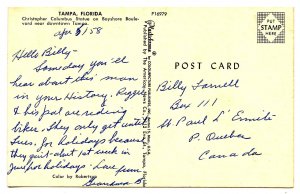 TAMPA, FLORIDA
Christopher Columbus Statue on Bayshore Boule-
vard near downtown Tampa.
P16979
Apr 6/58
Hello Billy—
Someday you'll
hear about this man
in your History.
& his pal are riding
bikes. They only get until
Tues. for holidays because
they quit about 1st week in
June for holidays Love from
Grandma B
Color by Robertson
POST CARD
PUT
STAMP
HERE
Billy Farrell
Box 111
St Paul L' Ermite
P. Quebec
Canada